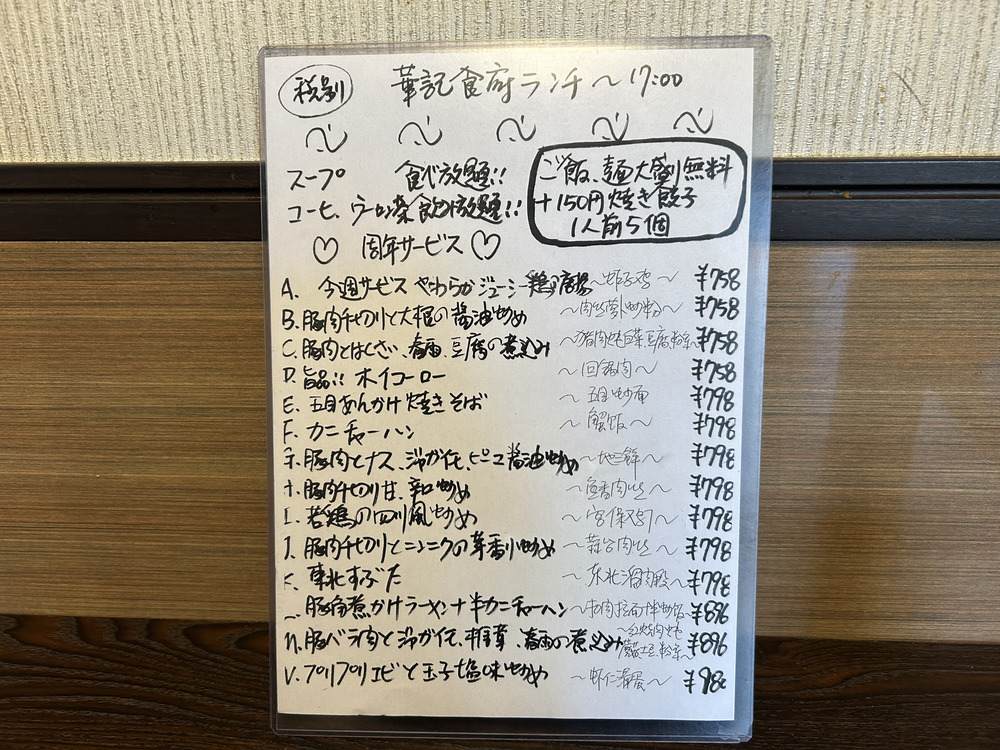 税別 華記食府ランチ～17:00
スープ 食べ放題!!
コーヒ、ウーロン茶 飲み放題!!
ご飯、麺大盛り無料
+150円焼き餃子
1人前5個
♡ 周年サービス ♡
A. 今週サービス やわらかジューシー鶏の唐揚 ～虾子鸡～ ¥758
B. 豚肉千切りと大根の醤油炒め ～肉丝萝卜炒粉～ ¥758
C. 豚肉とはくさい、春雨、豆腐の煮込み ～猪肉炖白菜豆腐粉条～ ¥758
D. 旨品!! ホイコーロー ～回锅肉～ ¥758
E. 五目あんかけ焼きそば ～五目炒面 ¥798
F. カニチャーハン ～蟹饭～ ¥798
豚肉とナス、ジャガイモ、ピーマン醤油炒め ～地三鲜～ ¥798
豚肉千切り甘、辛口炒め ～鱼香肉丝～ ¥798
I. 若鶏の四川風炒め ～宫保鸡丁～ ¥798
J. 豚肉千切りとニンニクの芽香り炒め ～蒜台肉丝～ ¥798
K. 東北すぶた ～东北溜肉段～ ¥798
豚角煮かけラーメン+半カニチャーハン ～牛肉拉面+半炒饭～ ¥896
豚バラ肉とジャガイモ、椎茸、春雨の煮込み ～红烧肉炖蘑菇土豆粉条～ ¥896
プリプリエビと玉子塩味炒め ～虾仁滑蛋～